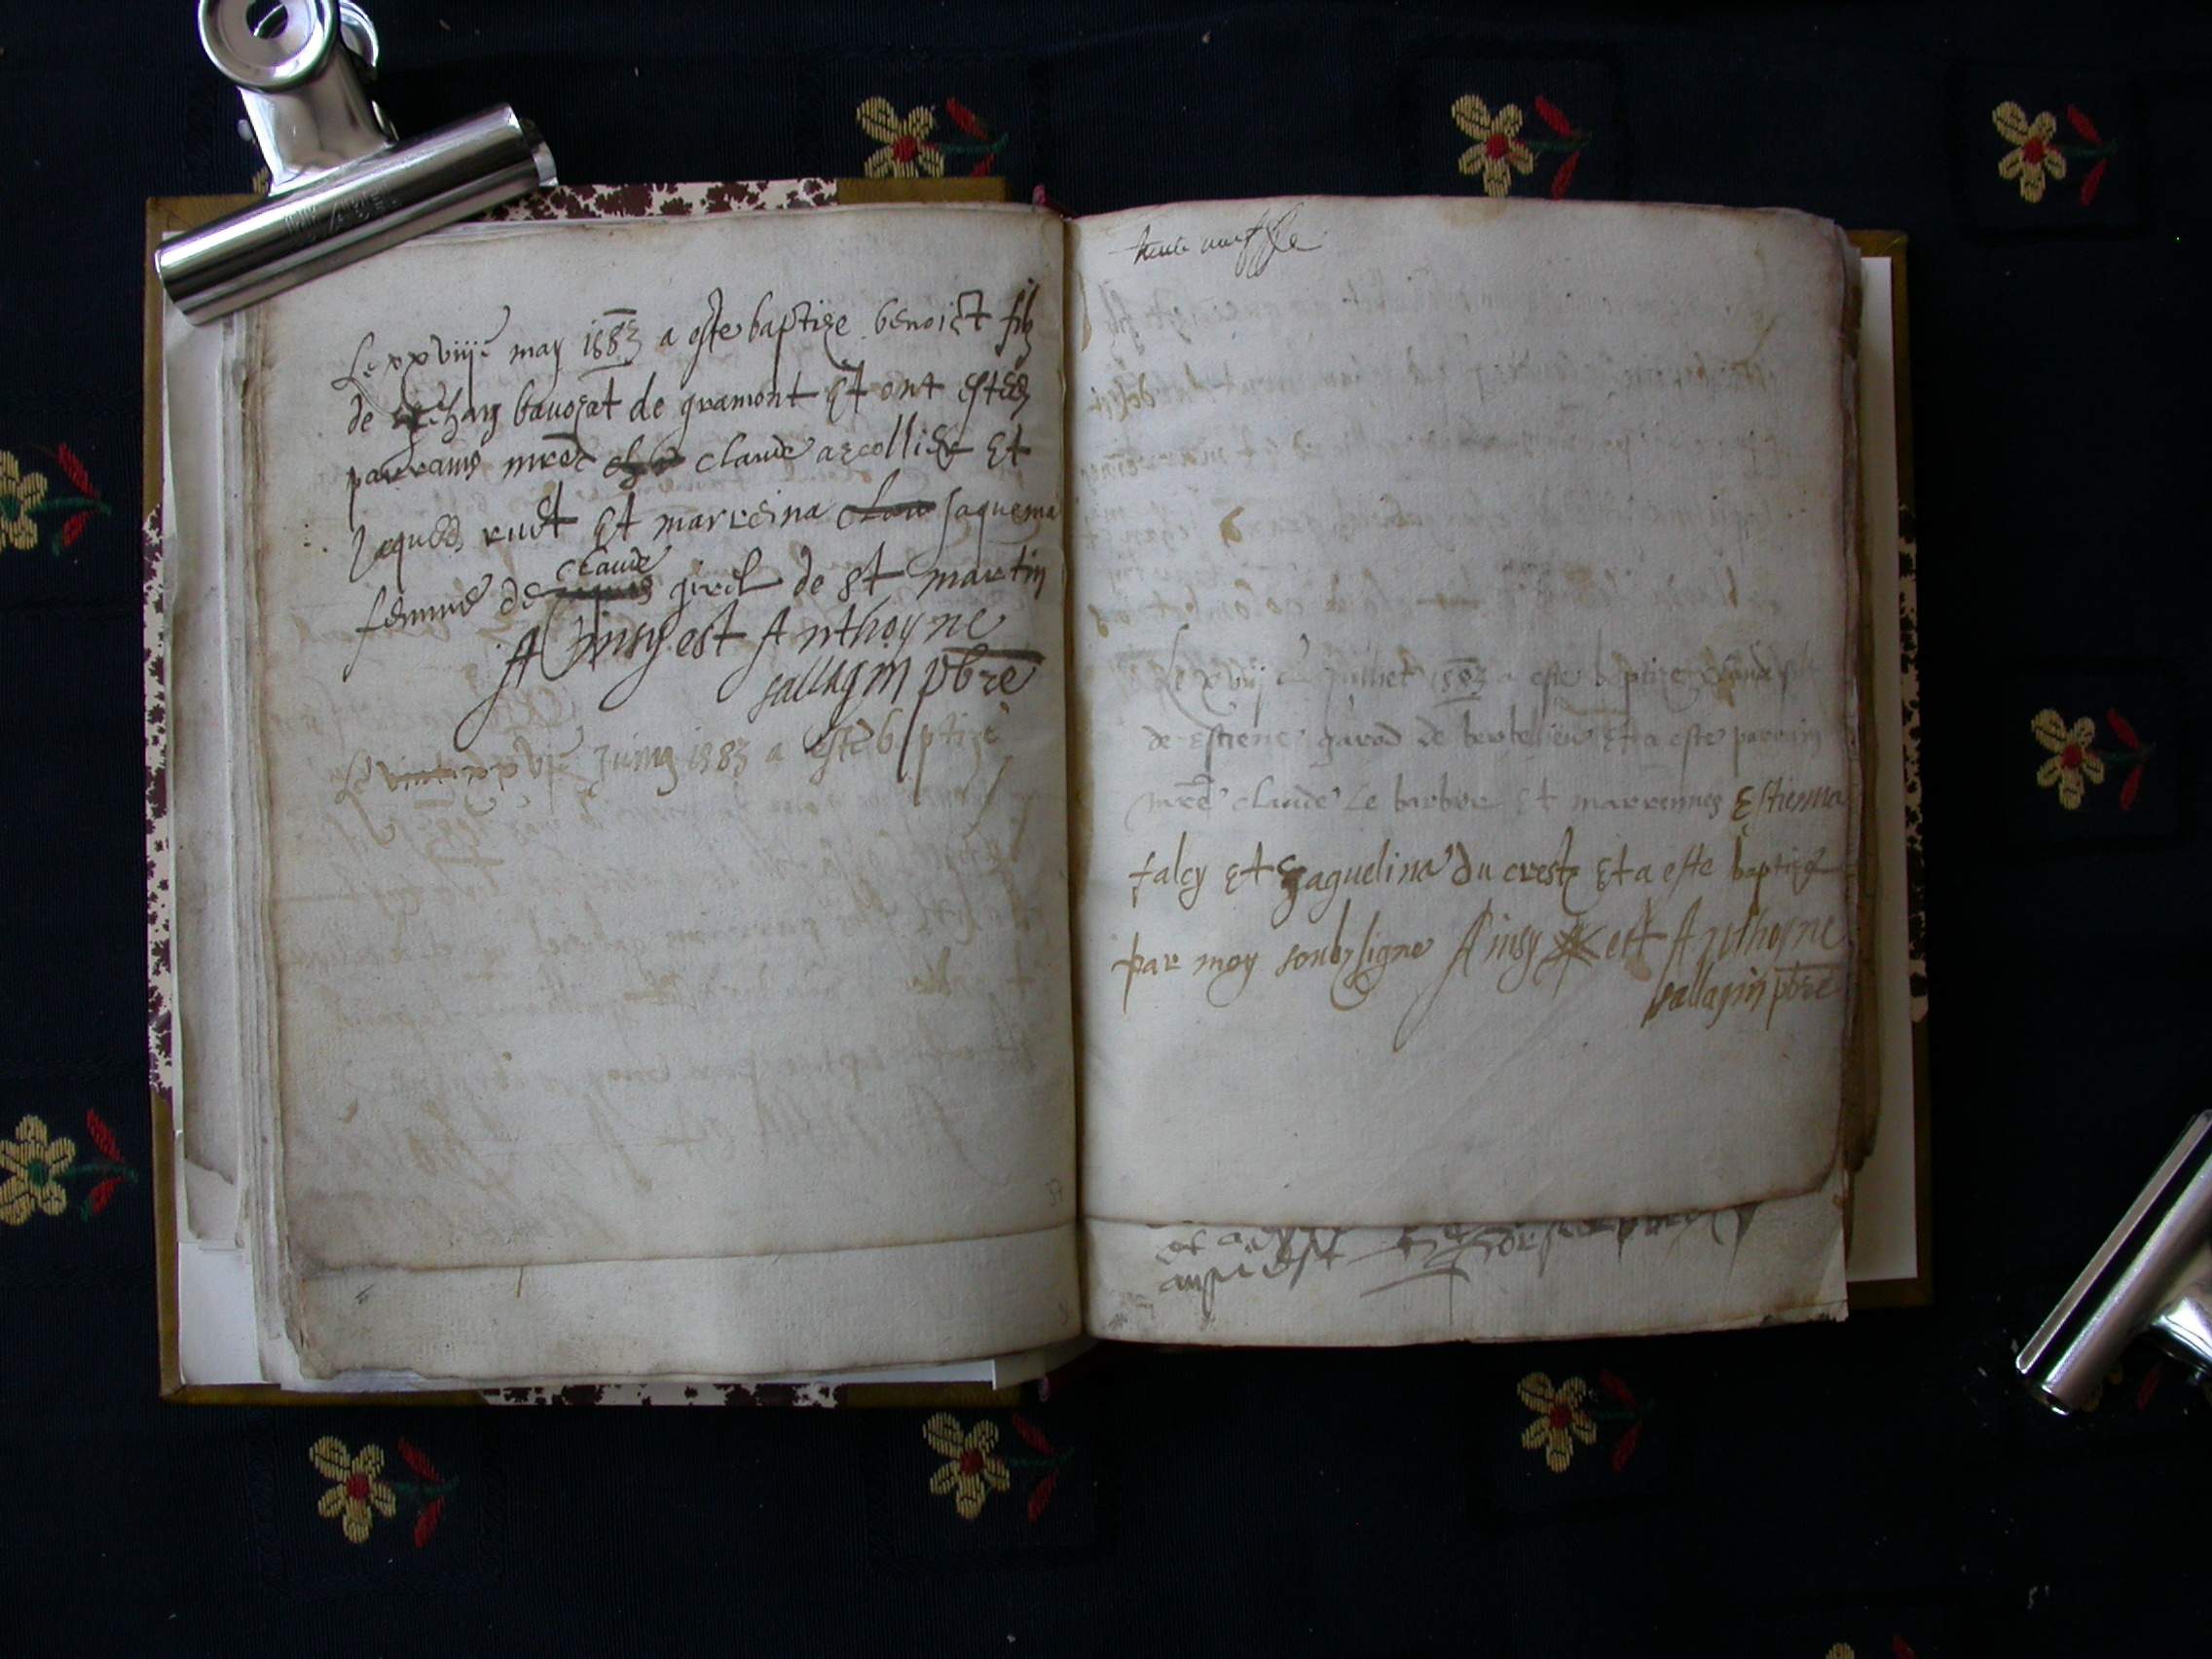 Le xxviije may 1583 a este baptize benoict filz
de Jehan bavozat de gramont Et ont estez
parrains mre claude azcollier Et
Jaques rudt Et marreina Jaquema
femme de claude giril de st martin
Ainsy est Anthoyne
sallagin pbre
Le vintz xxvje Juing 1583 a este b ptize
trente neuf
Le xviij du Juilliet 1583 a este baptize claude filz
de Estiene garod de berbelieu Et a este parrain
mre claude Le barbier Et marrennes Estienna
falcy Et Jaquelina du crest Et a este baptize
par moy soubzsigne Ainsy est Anthoyne
sallagin pbre
ainsi est